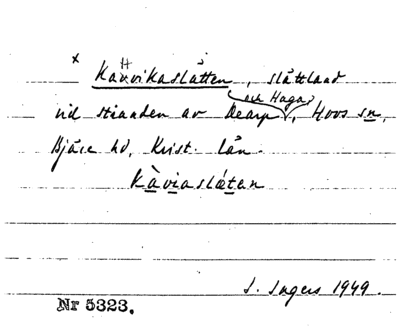 x Kåvvikaslåtten, slåttland
vid stranden av Dearp och Haga, Hovs sn,
Bjäre hd, Krist. län.
Kàviaslåtan
I. Ingers 1949.
Nr 5323.